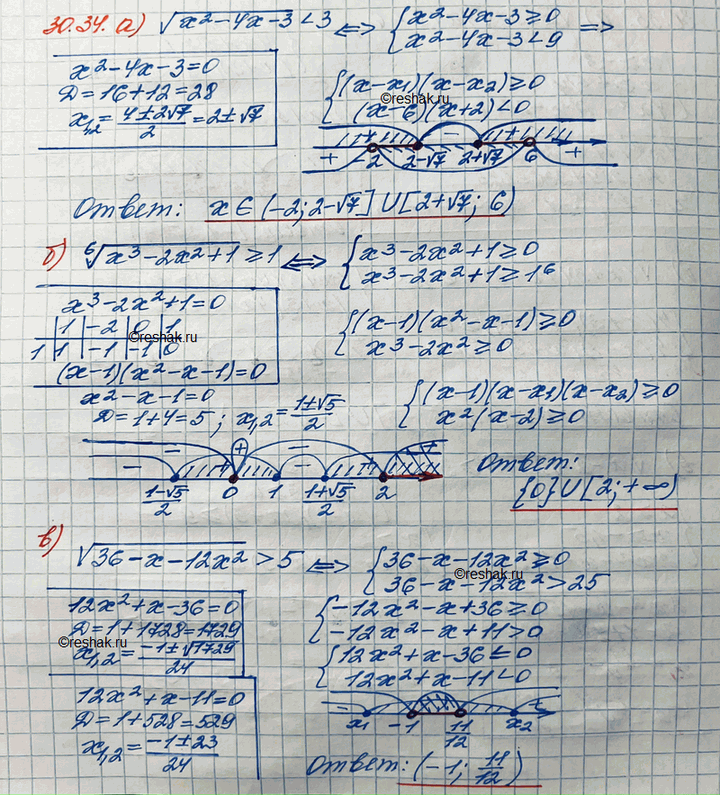 30.34. а) √x²-4x-3 < 3 ⇔ { x²-4x-3≥0
x²-4x-3<9 ⇒
x²-4x-3=0
Д=16+12=28
x₁,₂=(4±2√7)/2=2±√7
{ (x-x₁)(x-x₂)≥0
(x-6)(x+2)<0
©reshak.ru
+ + - + +
+ -2 2-√7 2+√7 6 +
Ответ: x∈(-2; 2-√7]∪[2+√7; 6)
б) ⁶√x³-2x²+1 ≥ 1 ⇔ { x³-2x²+1≥0
x³-2x²+1≥1⁶
x³-2x²+1=0
1 -2 0 1
1 1 -1 -1 0
©reshak.ru
(x-1)(x²-x-1)=0
{ (x-1)(x²-x-1)≥0
x³-2x²≥0
x²-x-1=0
Д=1+4=5; x₁,₂=(1±√5)/2
{ (x-1)(x-x₁)(x-x₂)≥0
x²(x-2)≥0
- + -
- + - + +
(1-√5)/2 0 1 (1+√5)/2 2
Ответ:
{0}∪[2; +∞)
в) √36-x-12x² > 5 ⇔ { 36-x-12x²≥0
36-x-12x²>25
©reshak.ru
12x²+x-36=0
Д=1+1728=1729
x₁,₂=(-1±√1729)/24
©reshak.ru
{ -12x²-x+36≥0
-12x²-x+11>0
{ 12x²+x-36≤0
12x²+x-11<0
12x²+x-11=0
Д=1+528=529
x₁,₂=(-1±23)/24
- +
x₁ -1 11/12 x₂
Ответ: (-1; 11/12)